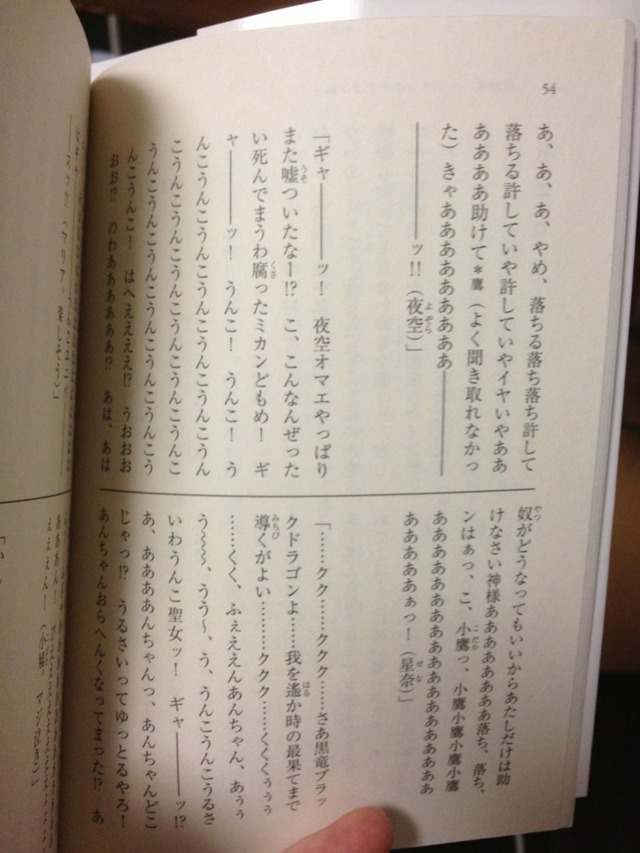 54
あ、あ、あ、やめ、落ちる落ち落ち許して
落ちる許していや許していやイヤいやああ
ああああ助けて＊鷹（よく聞き取れなかっ
た）きゃああああああああああ――――
――――ッ!!（夜空）」
「ギャ――――ッ！　夜空オマエやっぱり
また嘘ついたなー!?　こ、こんなんぜった
い死んでまうわ腐ったミカンどもめ！　ギ
ャ――――ッ！　うんこ！　うんこ！　う
んこうんこうんこうんこうんこうんこうん
こうんこうんこうんこうんこうんこうんこ
うんこうんこうんこうんこうんこうんこう
んこうんこ！　はへえええ!?　うおおお
おお!?　のわああああああ!?　あは、あは
奴がどうなってもいいからあたしだけは助
けなさい神様ああああああああ落ち、落ち、
ンはぁっ、こ、小鷹っ、小鷹小鷹小鷹小鷹
ああああああああああああああああああ
ああああああぁっ！（星奈）」
「……クク……ククク……さあ黒竜ブラッ
クドラゴンよ……我を遙か時の最果てまで
導くがよい…………ククク……くくくぅぅぅ
……くく、ふぇえええんあんちゃん、あぅぅ
う～～～、うう～、う、うんこうんこうるさ
いわうんこ聖女ッ！　ギャ――――ッ!?
あ、ああああんちゃんっ、あんちゃんどこ
じゃっ!?　うるさいってゆっとるやろ！
あんちゃんおらへんくなってまった!?　あ
スッ!!（マリア。楽しそう）」
えええん！（小鳩。マジ泣き）」